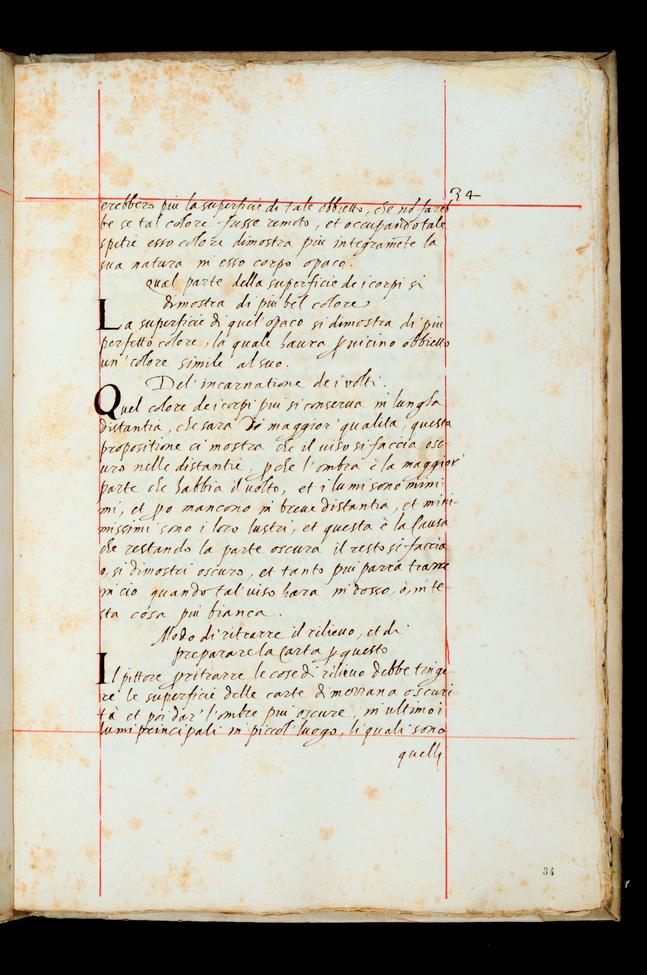 34
erebbero piu la superficie di tale obbietto, che nõ fareb
be se tal colore fusse remoto, et occupando tale
spetie esso colore dimostra piu integramẽte la
sua natura in esso corpo opaco.
qual parte della superficie de i corpi si
dimostra di piu bel colore
La superficie di quel opaco si dimostra di piu
perfetto colore, la quale haura p vicino obbietto
un' colore simile al suo.
Del' incarnatione de i volti.
Quel colore de i corpi piu si conserua in lungha
distantia, che sara di maggior' qualita, questa
propositione ci mostra che il viso si faccia osc-
uro nelle distantie, p che l'ombra è la maggior'
parte che habbia il volto, et i lumi sono mini-
mi, et po mancono in breue distantia, et mini-
missimi sono i loro lustri, et questa è la causa
che restando la parte oscura il resto si faccia
o, si dimostri oscuro, et tanto piu parra trarre
in cio quando tal viso hara in dosso, ò, in te-
sta cosa piu bianca.
Modo di ritrarre il rilieuo, et di
preparare la carta p questo
Il pittore p ritrarre le cose di rilieuo debbe tinge-
re le superficie delle carte di mezzana oscuri
tà et poi dar' l'ombre piu oscure, in ultimo i
lumi principali in piccol' luogo, li quali sono
quelli
84